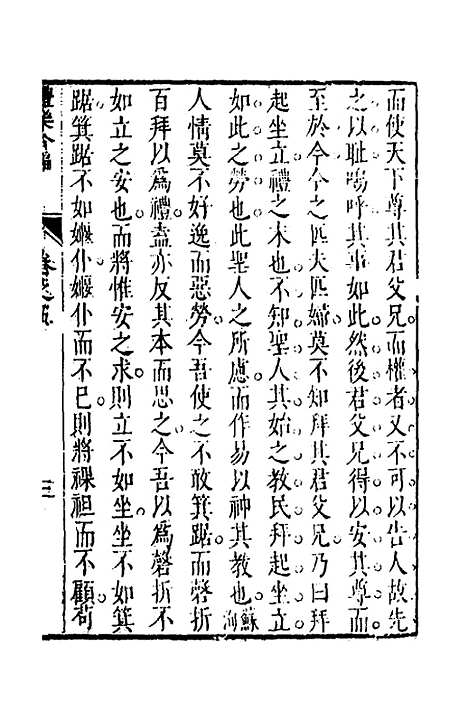 而使天下尊其君父兄而權者又不可以告人故先
之以耻嗚呼其事如此然後君父兄得以安其尊而
至於今今之匹夫匹婦莫不知拜其君父兄乃曰拜
起坐立禮之末也不知聖人其始之教民拜起坐立
如此之勞也此聖人之所慮而作易以神其教也蘇洵
人情莫不好逸而惡勞今吾使之不敢箕踞而磬折
百拜以爲禮蓋亦反其本而思之今吾以爲磬折不
如立之安也而將惟安之求則立不如坐坐不如箕
踞箕踞不如偃仆偃仆而不已則將裸袒而不顧苟
禮樂合編
卷之五
三